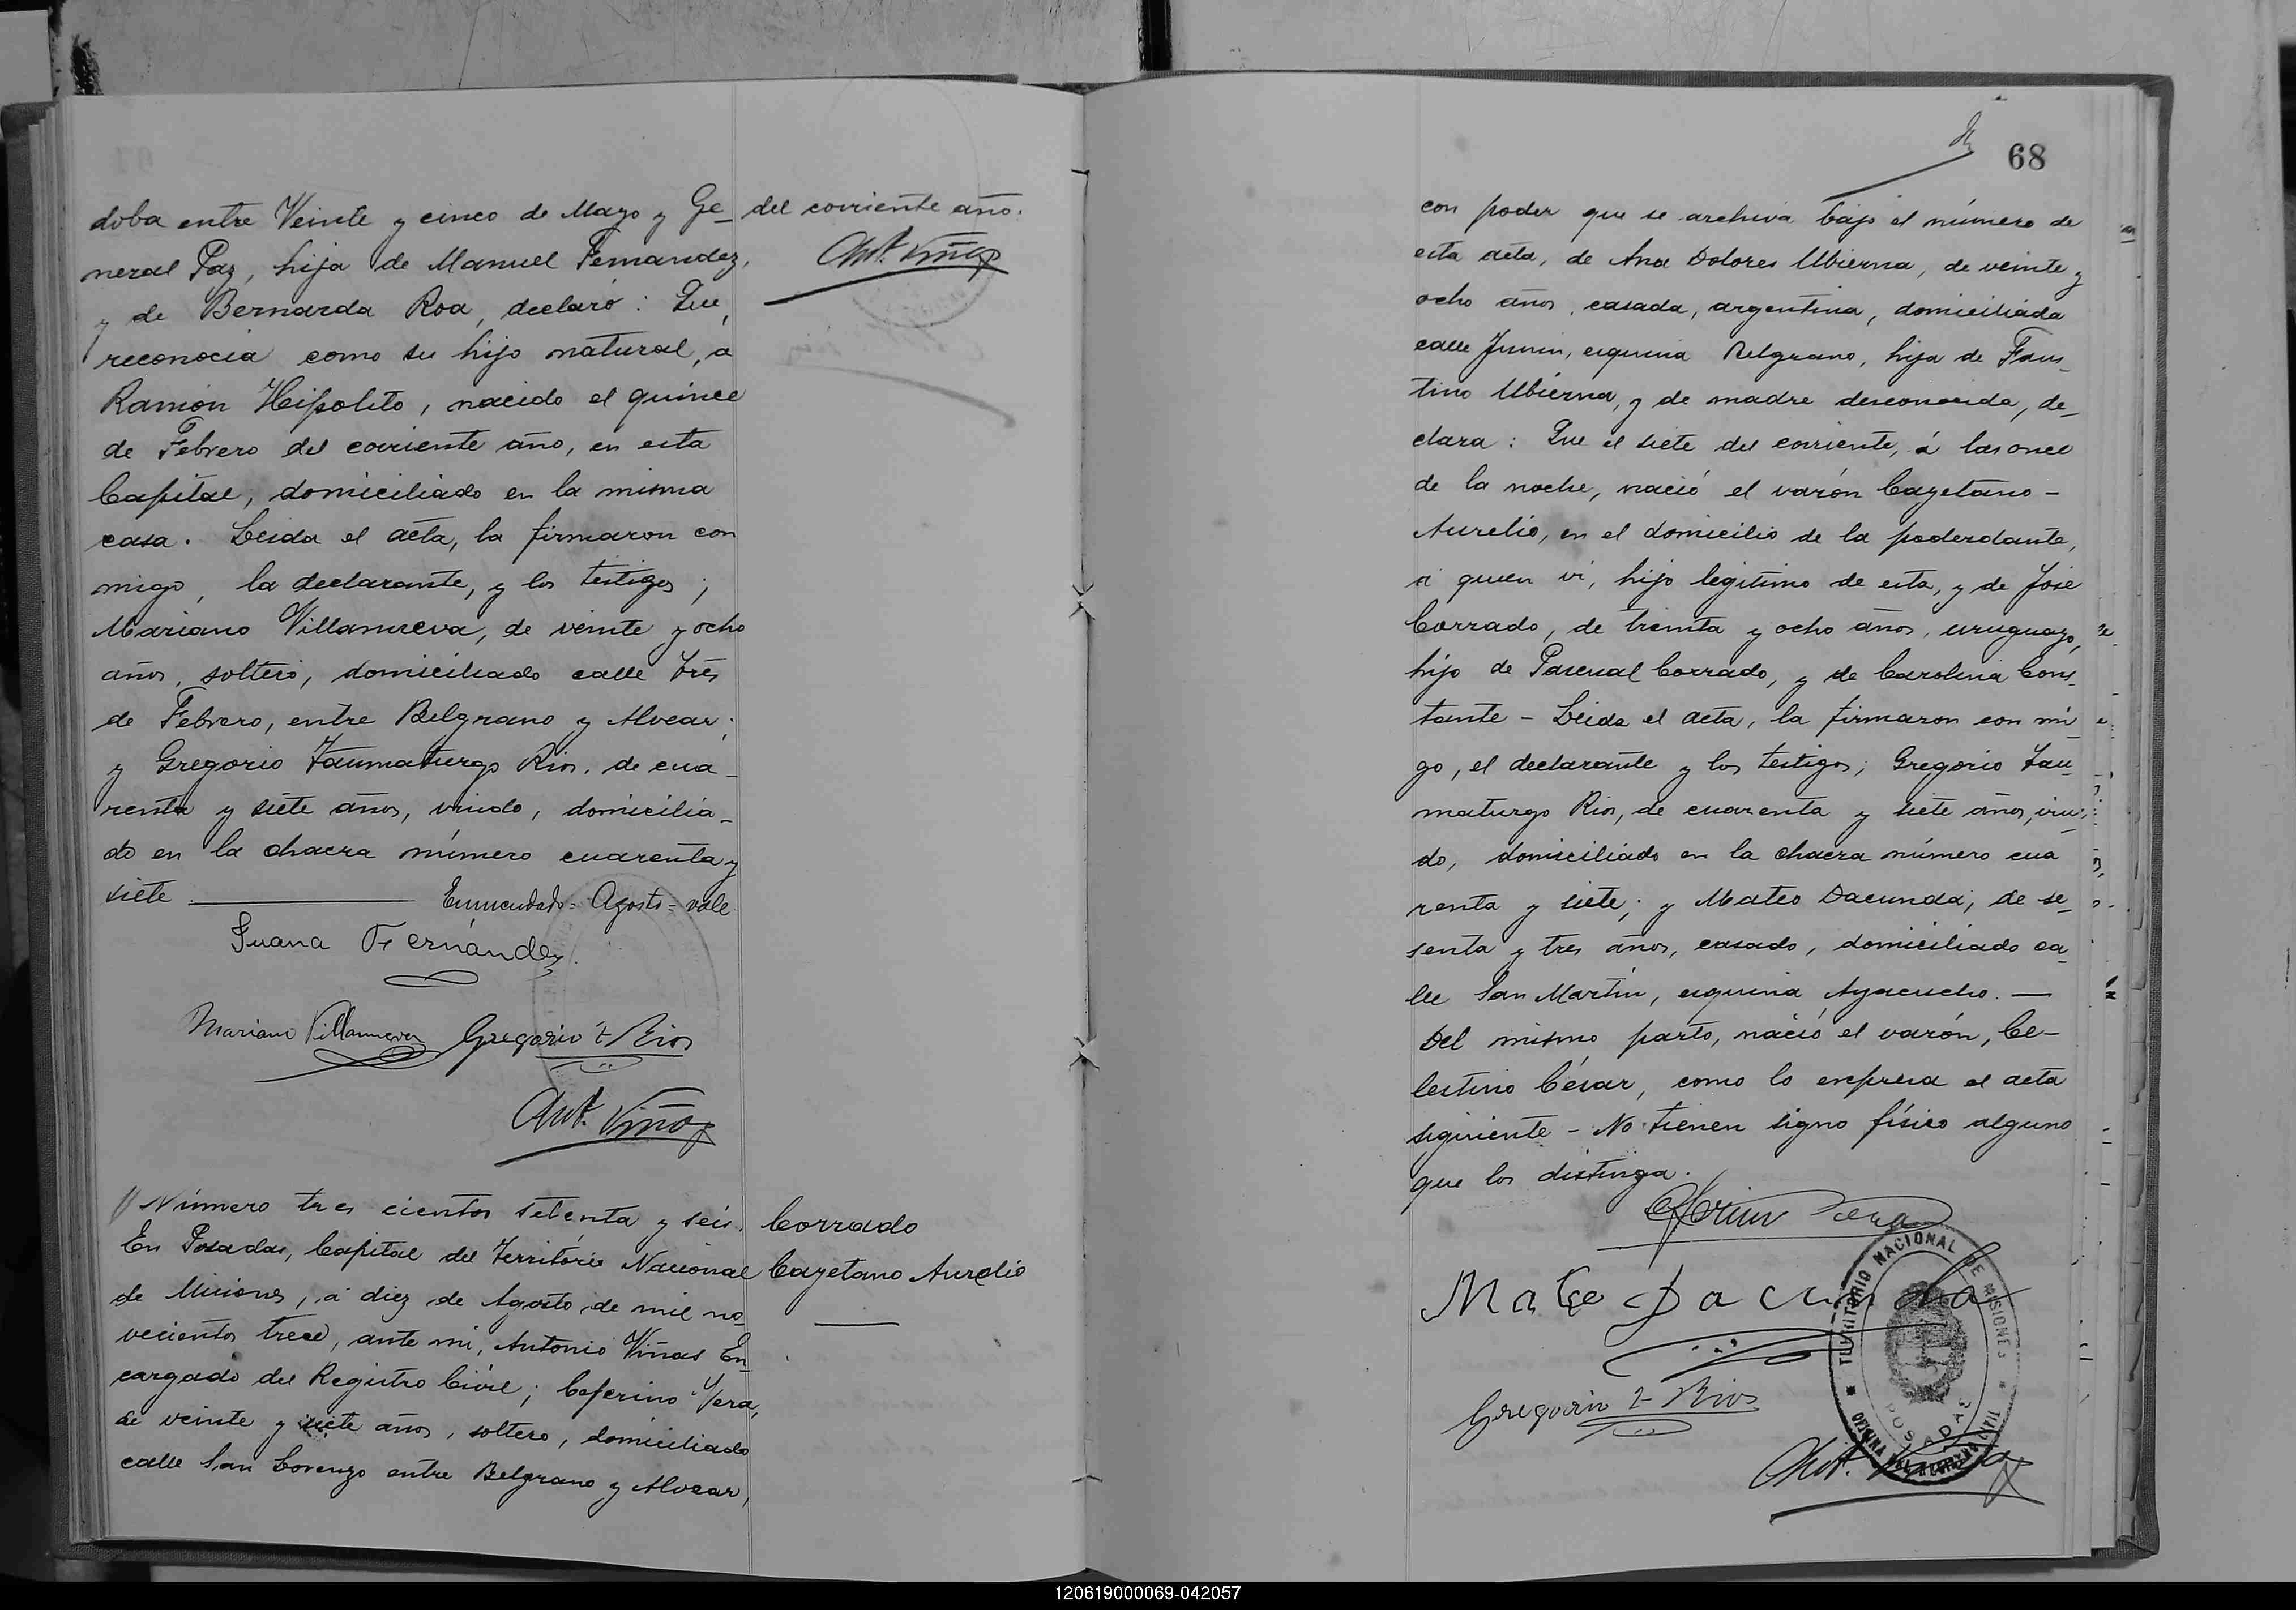 doba entre Veinte y cinco de Mayo y Ge_
neral Paz, hija de Manuel Fernandez,
y de Bernarda Roa, declaró: Que,
reconocia como su hijo natural, a
Ramón Heipolito, nacido el quince
de Febrero del corriente año, en esta
Capital, domiciliado en la misma
casa. Leida el acta, la firmaron con
migo, la declarante, y los testigos;
Mariano Villanueva, de veinte y ocho
años, soltero, domiciliado calle Tres
de Febrero, entre Belgrano y Alvear;
y Gregorio Taumaturgo Rios, de cua_
renta y siete años, viudo, domicilia_
do en la chacra número cuarenta y
siete Enmendado - Agosto - vale.
Juana Fernández.
Mariano Villanueva Gregorio T Rios
Ant. Viñas
del corriente año.
Ant. Viñas
Número tres cientos setenta y seis.
En Posadas, Capital del Territorio Nacional
de Misiones, á diez de Agosto de mil no_
vecientos trece, ante mi, Antonio Viñas En_
cargado del Registro Civil; Ceferino Vera,
de veinte y siete años, soltero, domiciliado
calle San Lorenzo entre Belgrano y Alvear,
Corrado
Cayetano Aurelio
68
con poder que se archiva bajo el número de
esta acta, de Ana Dolores Ubierna, de veinte y
ocho años, casada, argentina, domiciliada
calle Junin, esquina Belgrano, hija de Faus_
tino Ubierna, y de madre desconocida, de_
clara: Que el siete del corriente, á las once
de la noche, nació el varón Cayetano -
Aurelio, en el domicilio de la poderdante,
á quien vi, hijo legitimo de esta, y de José
Corrado, de treinta y ocho años, uruguayo,
hijo de Pascual Corrado, y de Carolina Cons_
tante - Leida el acta, la firmaron con mi_
go, el declarante y los testigos; Gregorio Tau_
maturgo Rios, de cuarenta y siete años, viu_
do, domiciliado en la chacra número cua
renta y siete; y Mateo Dacunda, de se_
senta y tres años, casado, domiciliado ca_
lle San Martin, esquina Ayacucho. —
Del mismo parto, nació el varón, Ce-
lestino César, como lo expresa el acta
siguiente - No tienen signo físico alguno
que los distinga.
Ceferino Vera
Mateo Dacunda
Gregorio T Rios
Ant. Viñas
TERRITORIO NACIONAL DE MISIONES
POSADAS
OFICINA DEL REGISTRO CIVIL
120619000069-042057